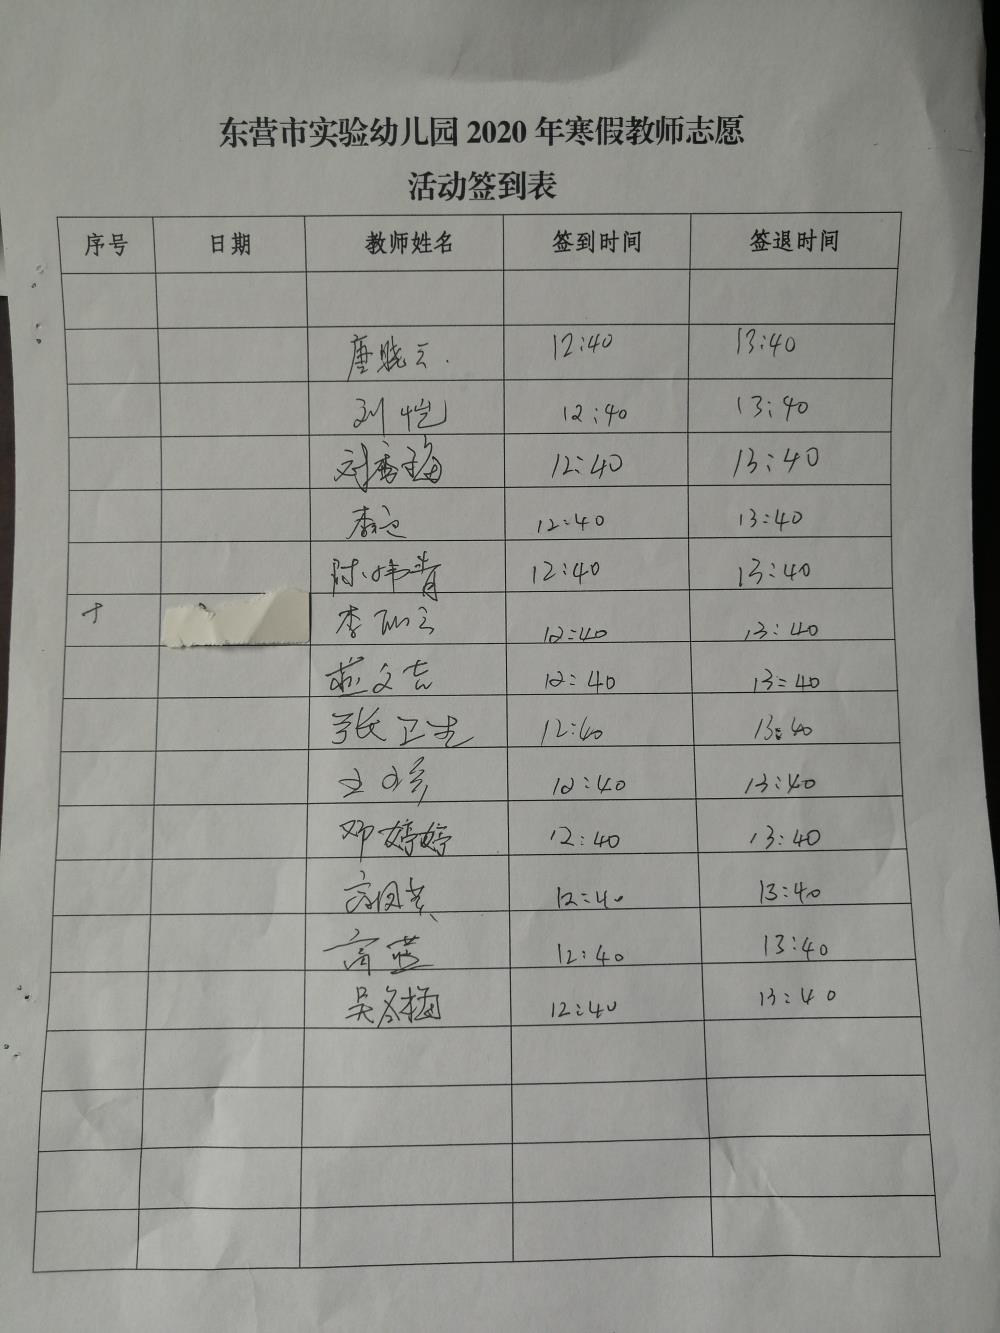 东营市实验幼儿园 2020 年寒假教师志愿
活动签到表
序号 日期 教师姓名 签到时间 签退时间
唐晓云. 12:40 13:40
刘恺 12:40 13:40
刘秀梅 12:40 13:40
12:40 13:40
陈炜青 12:40 13:40
李 12:40 13:40
12:40 13:40
张卫先 12:40 13:40
王 12:40 13:40
邓婷婷 12:40 13:40
12:40 13:40
高蓝 12:40 13:40
吴冬梅 12:40 13:40